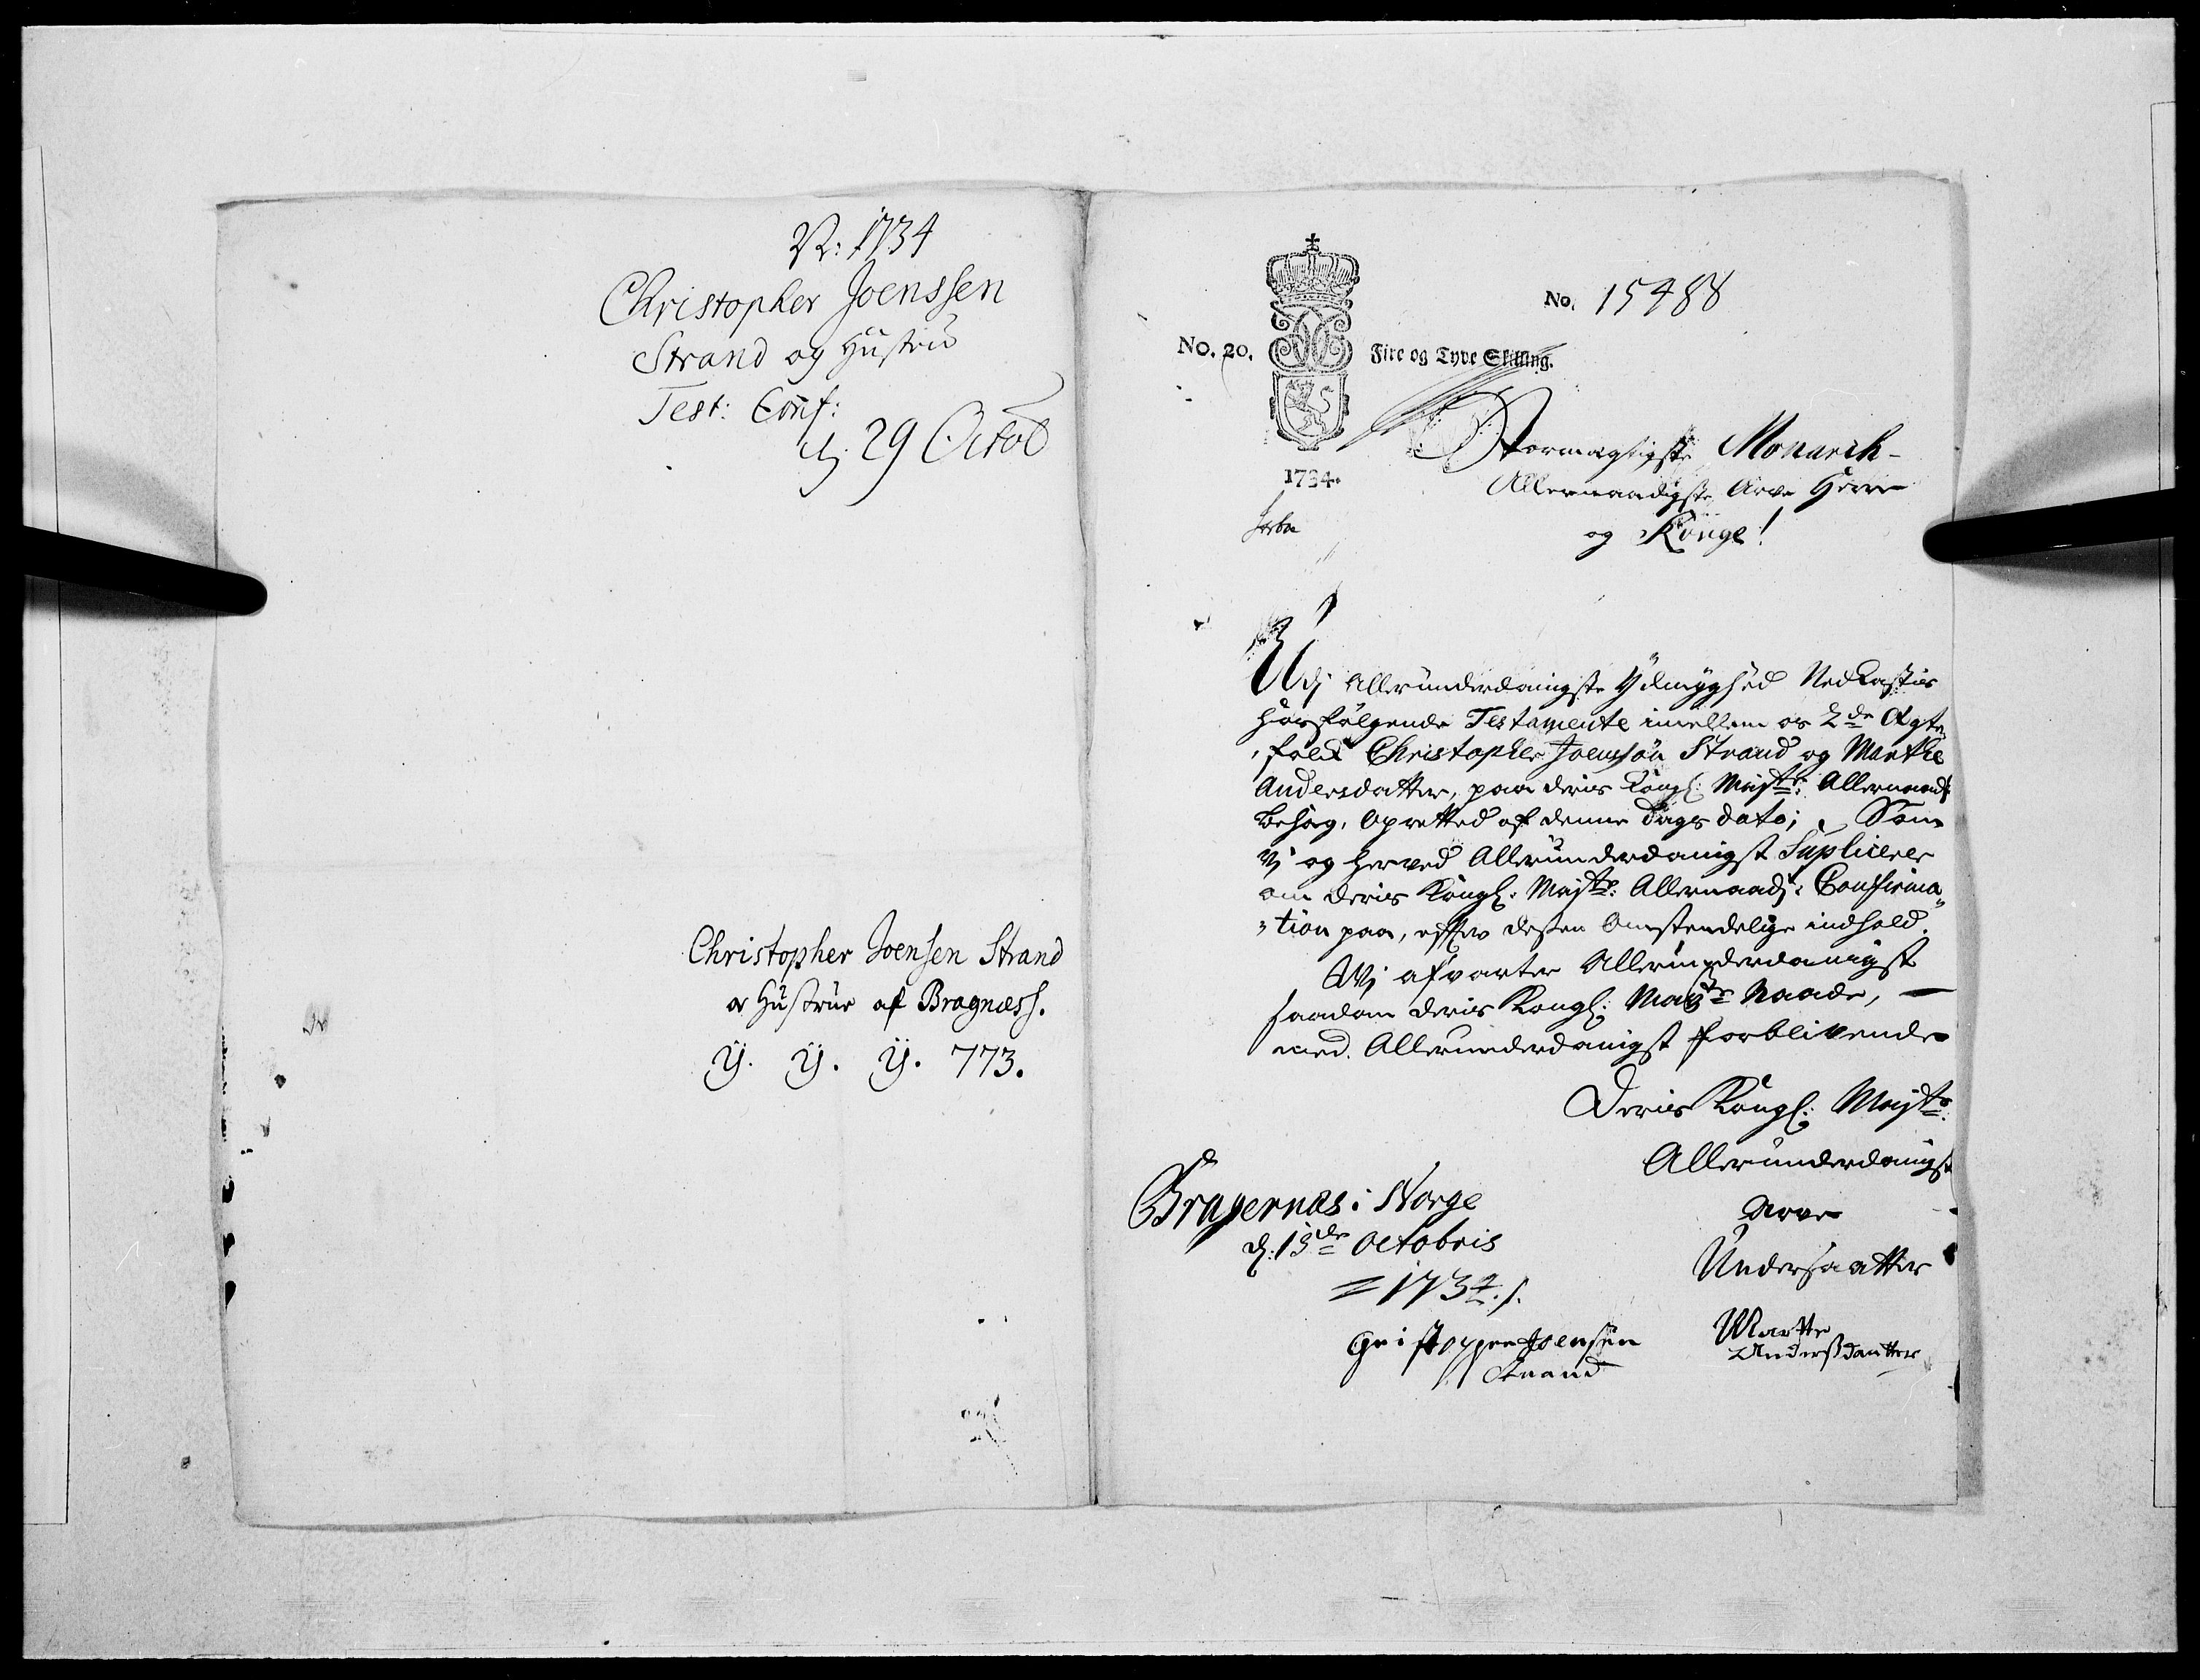 N: 1734
Christopher Joenssen
Strand og Hustru
Test: Conf:
d. 29 Octob
Christopher Joensen Strand
og Hustrue af Bragnæss.
ÿ. ÿ. ÿ. 773.
No. 15488
No. 20.
Fire og Tyve Skilling.
1734.
Stormægtigste Monarch
Allernaadigste Arve Herre
og Konge!
Udj Allerunderdanigste Ydmyghed Nedkastis
hosfølgende Testamente imellem os 2de Ægte
folk Christopher Joenssøn Strand og Marthe
Andersdatter, paa deris Kongl: Mayts: Allernaadst
behag, Opretted af denne Dags dato; Som
Vj og herved Allerunderdanigst Suplicerer
om deris Kongl: Mayts: Allernaadst: Confirma
tion paa, efter dessen Omstendelige indhold.
Wj afvarter Allerunderdanigst
saadan deris Kongl: Mayts Naade, —
med. Allerunderdanigst forblivende
Deris Kongl: Mayts
Allerunderdanigst
Arve
Undersaatter
Bragernæs i Norge
d: 15de Octobris
= 1734./.
Gristopper Joensen
Strand
Marthe
Andersdaatter